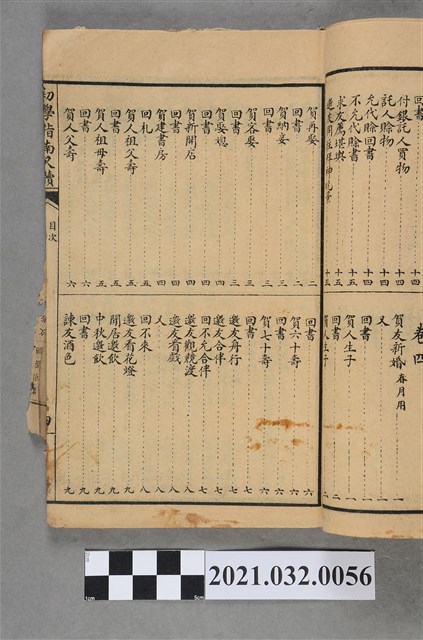 回書
付銀託人買物 十四
託人賒物 十四
允代賒回書 十四
不允代賒書 十四
求友薦堪輿 十五
邀友同往 十五
卷四
賀友新婚 春月用 一
又 一
回書 一
賀人生子 一
回書 二
人生子 二
賀再娶 二
賀納妾 二
回書 三
賀容妾 三
回書 三
賀娶媳 三
回書 四
賀新開店 四
回書 四
賀建書房 四
回札 五
賀人祖父壽 五
回書 五
賀人祖母壽 五
回書 六
賀人父壽 六
回書 六
賀六十壽 六
回書 六
賀七十壽 六
回書 七
邀友舟行 七
邀友合伴 七
回不允合伴 七
邀友觀競渡 八
邀友看戲 八
又 八
回不來 八
邀友看花燈 九
閒居邀飲 九
中秋邀飲 九
回書 九
諫友酒色 九
初學指南尺牘
目次
1cm
5cm
2021.032.0056